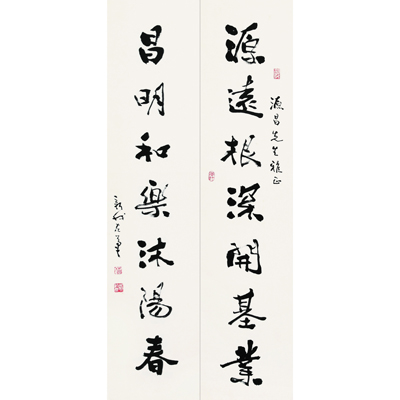 源昌先生雅正
源遠根深開基業
昌明和樂沐陽春